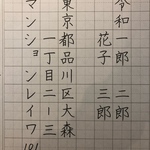 令和一郎 二郎
花子 三郎
東京都品川区大森
一丁目二ー三
マンションレイワ101